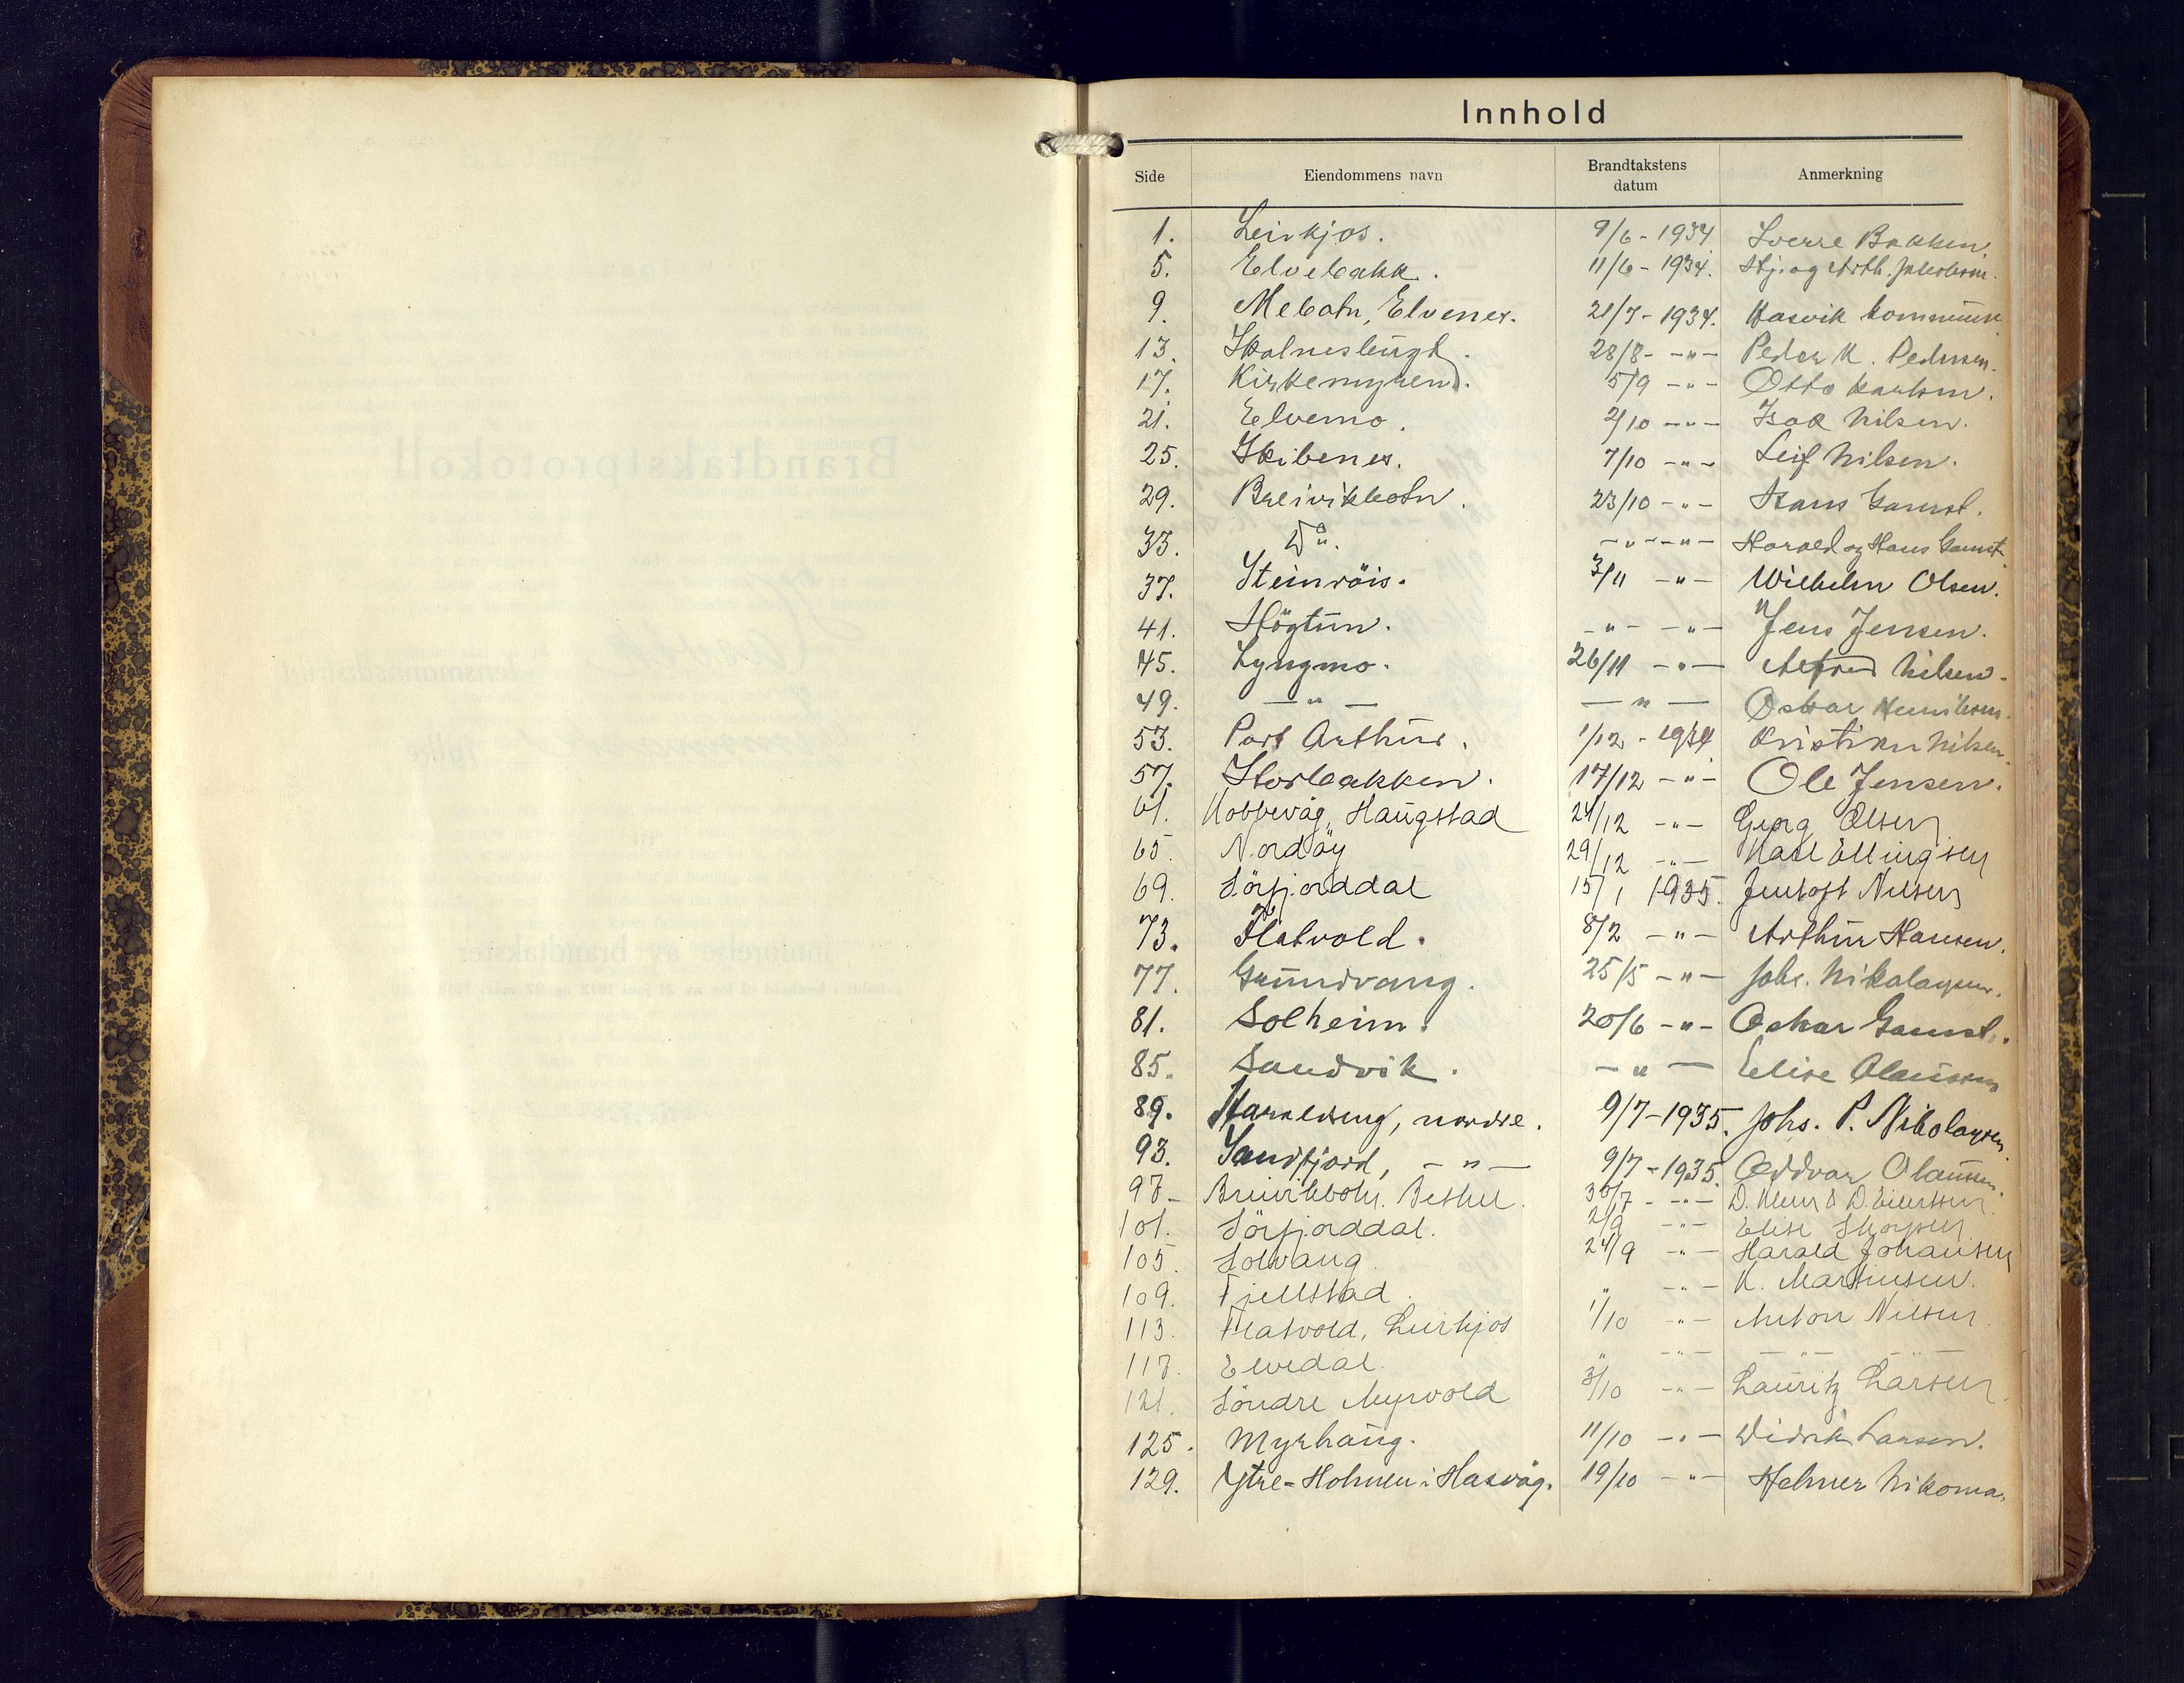 Innhold
Side Eiendommens navn Brandtakstens datum Anmerkning
1. Leirkjos. 9/6-1934 Sverre Bakken
5. Elvebakk. 11/6-1934. Hj. og Arth. Jakobsen.
9. Mebotn, Elvenes. 21/7-1934. Hasvik kommune
13. Skolneslengd. 28/8- -"- Peder K. Pedersen.
17. Kirkemyren. 5/9 -"- Otto Karlsen.
21. Elvemo. 2/10 -"- Isak Nilsen.
25. Skibenes. 7/10 -"- Leif Nilsen.
29. Breivikbotn. 23/10 -"- Hans Gamst.
33. Do. -"- -"- Harald og Hans Gamst
37. Steinröis. 3/11 -"- Wilhelm Olsen.
41. Högtun. -"- -"- Jens Jensen.
45. Lyngmo. 26/11 -"- Alfred Nilsen.
49. -"- -"- Oskar Henriksen.
53. Port Arthur. 1/12-1934 Kristian Nilsen
57. Storbakken. 17/12 -"- Ole Jensen.
61. Kobbevåg, Haugstad 24/12 -"- Georg Olsen
65. Nordöy 29/12 -"- Karl Ellingsen
69. Sörfjorddal 15/1 1935. Jentoft Nilsen
73. Flatvold. 8/2 -"- Arthur Hansen.
77. Grundvang. 25/5 -"- Johs. Nikolaysen.
81. Solheim. 20/6 -"- Oskar Gamst.
85. Sandvik. -"- Elise Olaussen
89. nordre. 9/7-1935. Johs. P. Nikolaysen
93. Sandfjord, -"- 9/7-1935. Oddvar Olaussen.
97- Breivikbotn. Bethel. 30/7- -"- D. D. Eilertsen.
101. Sörfjorddal. 2/9 -"- Elise
105. Solvang. 24/9 -"- Harald Johansen
109. Fjellstad. " -"- K. Martinsen.
113. Flatvold, Leirkjos 1/10 -"- Anton Nilsen
117. Elvedal. " -"- -"- -"-
121. Söndre Myrvold 3/10 -"- Lauritz Larsen
125. Myrhaug. 11/10 -"- Didrik Larsen.
129. Ytre-Holmen i Hasvåg. 19/10 -"- Helmer Nikoma.